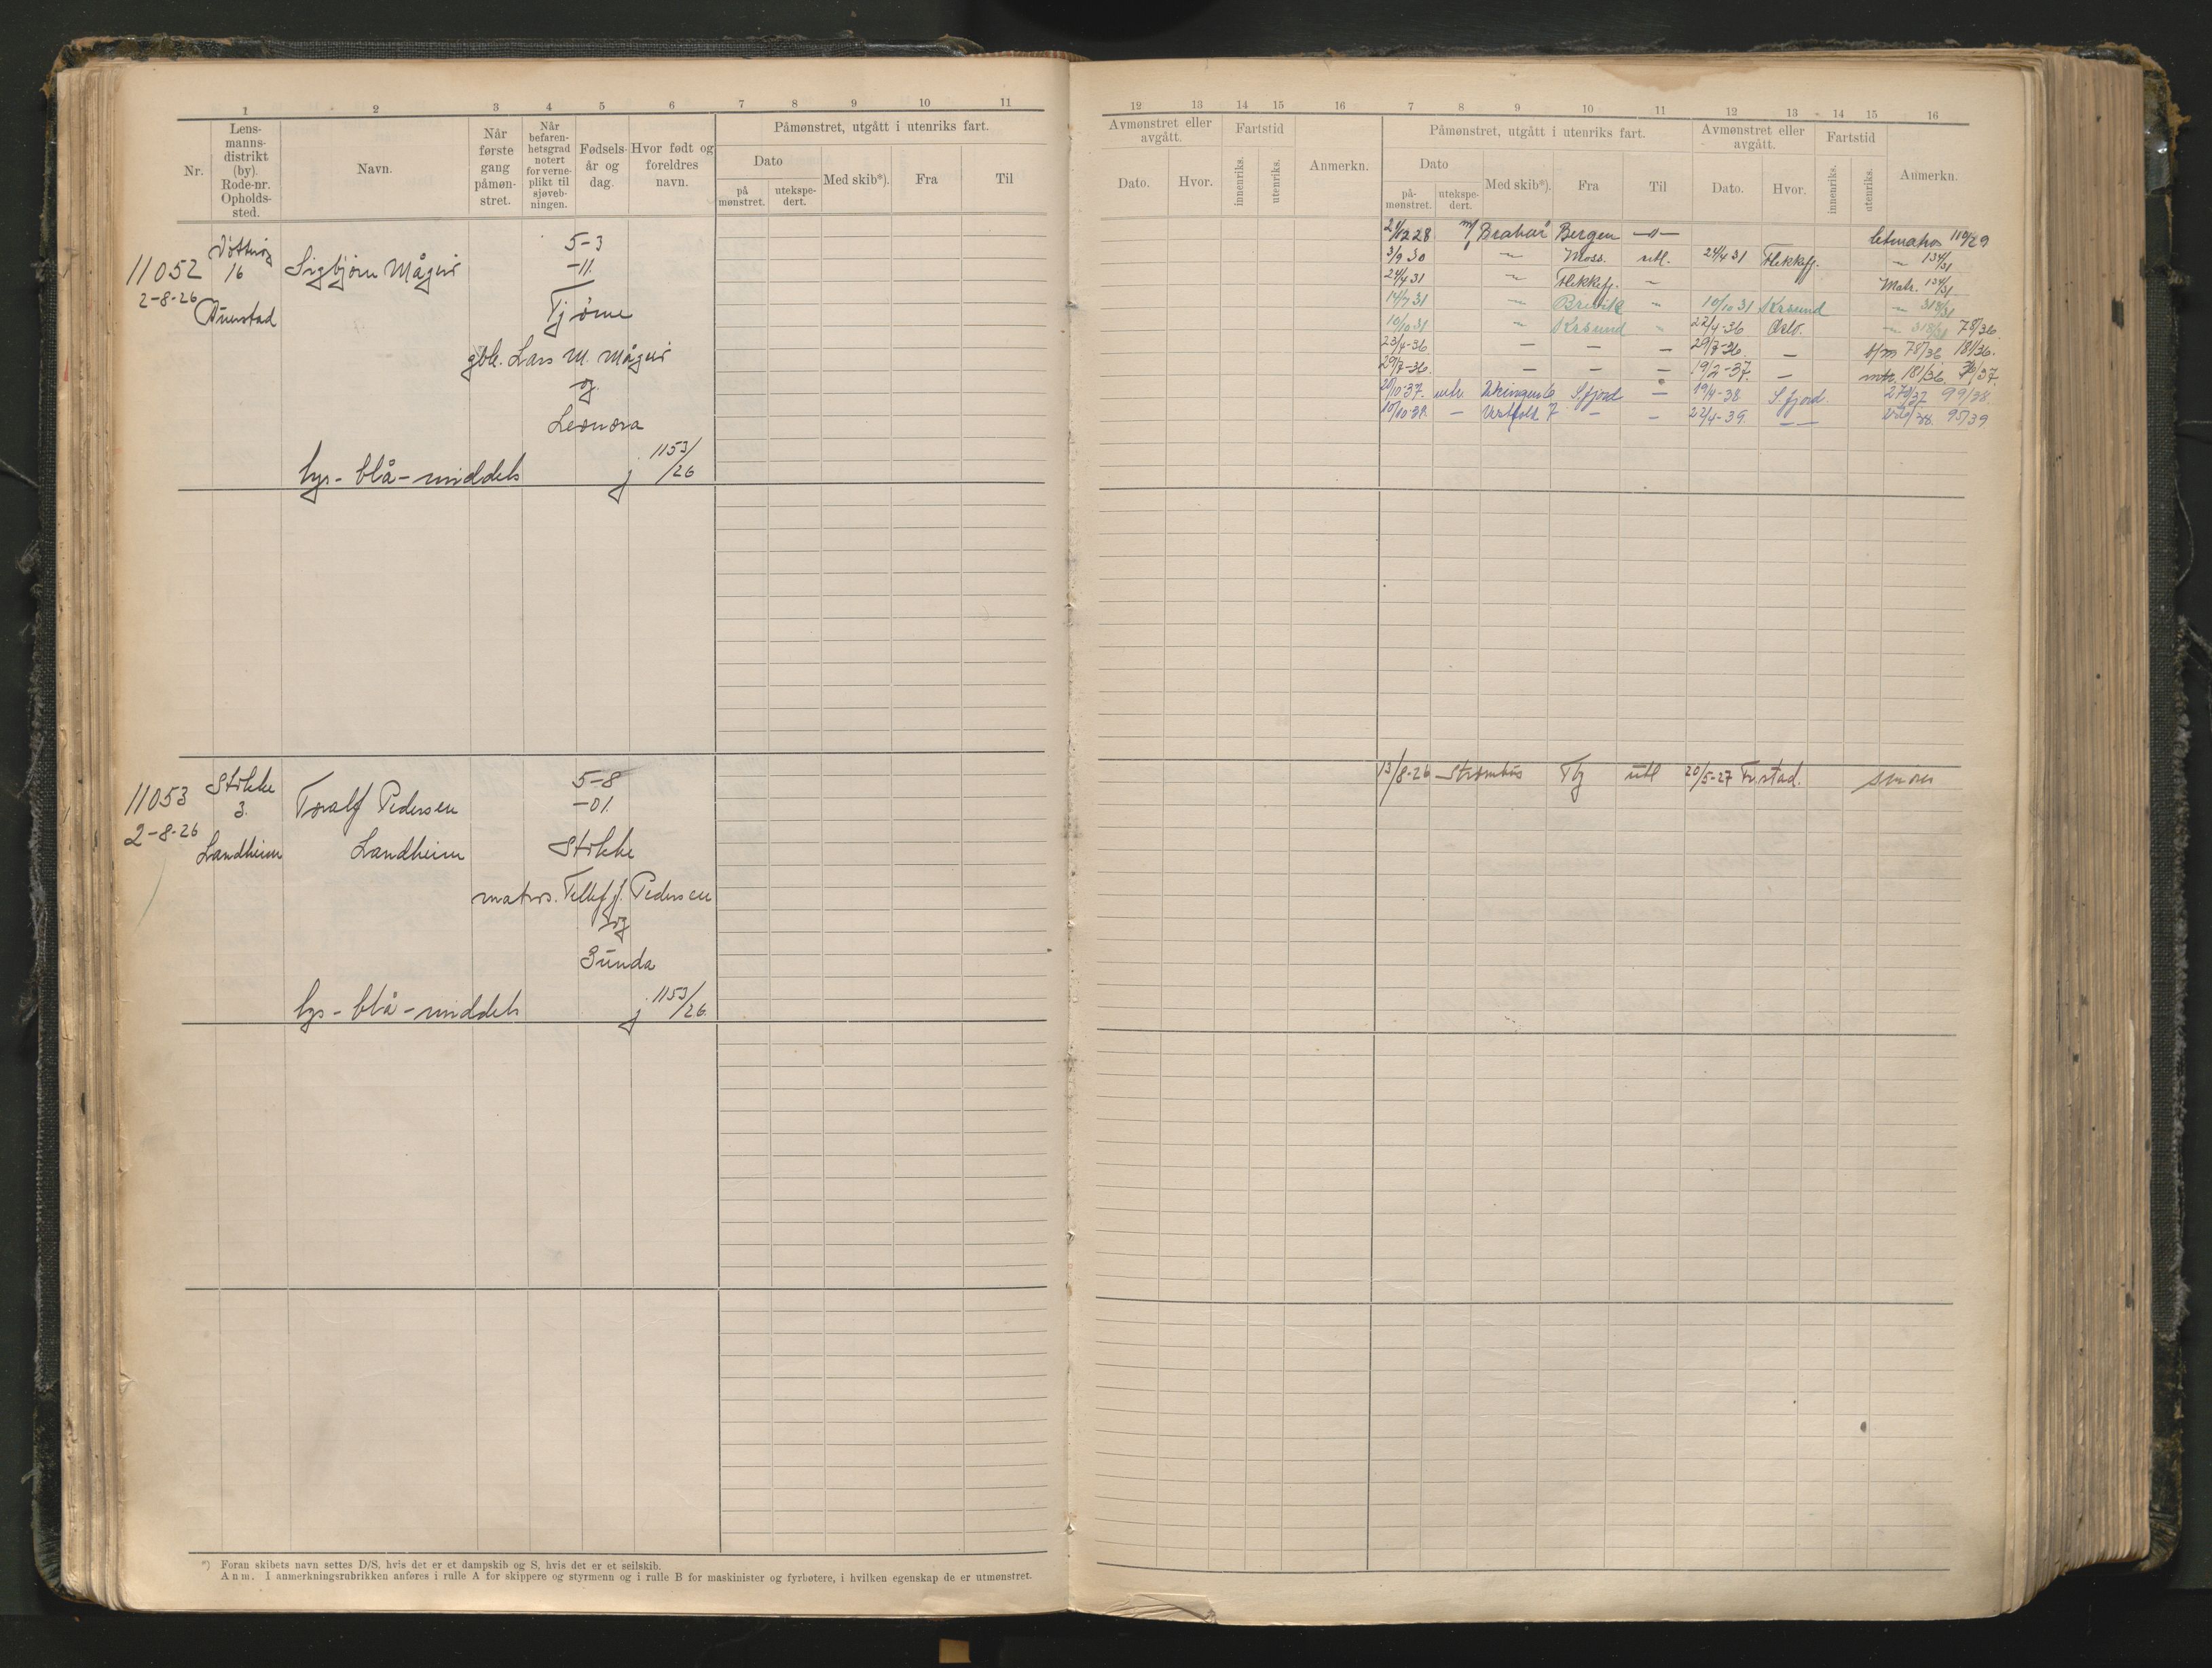 1 2 3 4 5 6 7 8 9 10 11
Nr.
Lens-
manns-
distrikt
(by).
Rode-nr.
Opholds-
sted.
Navn.
Når
første
gang
påmøn-
stret.
Når
befaren-
hetsgrad
notert
for verne-
plikt til
sjøveb-
ningen.
Fødsels-
år og
dag.
Hvor født og
foreldres
navn.
Påmønstret, utgått i utenriks fart.
Dato
på
mønstret.
utekspe-
dert.
Med skib*).
Fra
Til
11052
2-8-26
16
Sigbjørn
5-3
-11.
Tjøme
Lars M.
og
Leonora
lys - blå - middels j 1153/26
11053
2-8-26
Stokke
3.
Landheim
Toralf Pedersen
Landheim
5-8
-01.
Stokke
matros. Tellef J. Pedersen
og
Gunda
lys - blå - middels j 1153/26
*) Foran skibets navn settes D/S, hvis det er et dampskib og S, hvis det er et seilskib.
Anm. I anmerkningsrubrikken anføres i rulle A for skippere og styrmenn og i rulle B for maskinister og fyrbøtere, i hvilken egenskap de er utmønstret.
12 13 14 15 16 7 8 9 10 11 12 13 14 15 16
Avmønstret eller
avgått.
Dato.
Hvor.
Fartstid
innenriks.
utenriks.
Anmerkn.
Påmønstret, utgått i utenriks fart.
Dato
på-
mønstret.
utekspe-
dert.
Med skib*).
Fra
Til
Avmønstret eller
avgått.
Dato.
Hvor.
Fartstid
innenriks.
utenriks.
Anmerkn.
Bergen -"- 110/29
3/9 30 " Moss. utl. 24/4 31 Flekkefj. " 134/31
24/4 31 " Flekkefj. " Matr. 134/31
14/7 31 " Brevik " 10/10 31 Krsund " 318/31
10/10 31 " Krsund " 22/4-36 Oslo. " 318/31 78/36
23/4-36 — — — 29/7-36. — 78/36 181/36.
29/7-36. — — — 19/2-37. — mtr. 181/36.
20/10-37. S.fjord — 19/4-38 S.fjord. 99/38.
— Vestfold 7 — — 22/4-39. — 95/39
13/8-26 Strombus Tbg utl 20/5-27 Fr.stad. smører